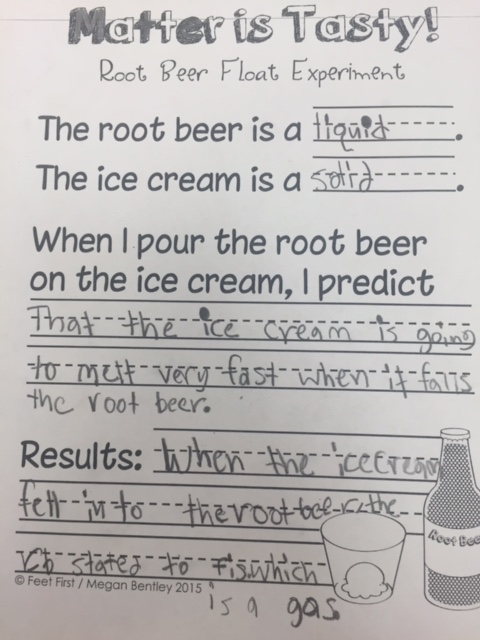 Matter is Tasty!
Root Beer Float Experiment
The root beer is a liquid.
The ice cream is a solid.
When I pour the root beer
on the ice cream, I predict
That the ice cream is going
to melt very fast when it falls
the root beer.
Results: When the icecream
fell in to the root beer the
stated to which
Root Bee
© Feet First / Megan Bentley 2015
is a gas